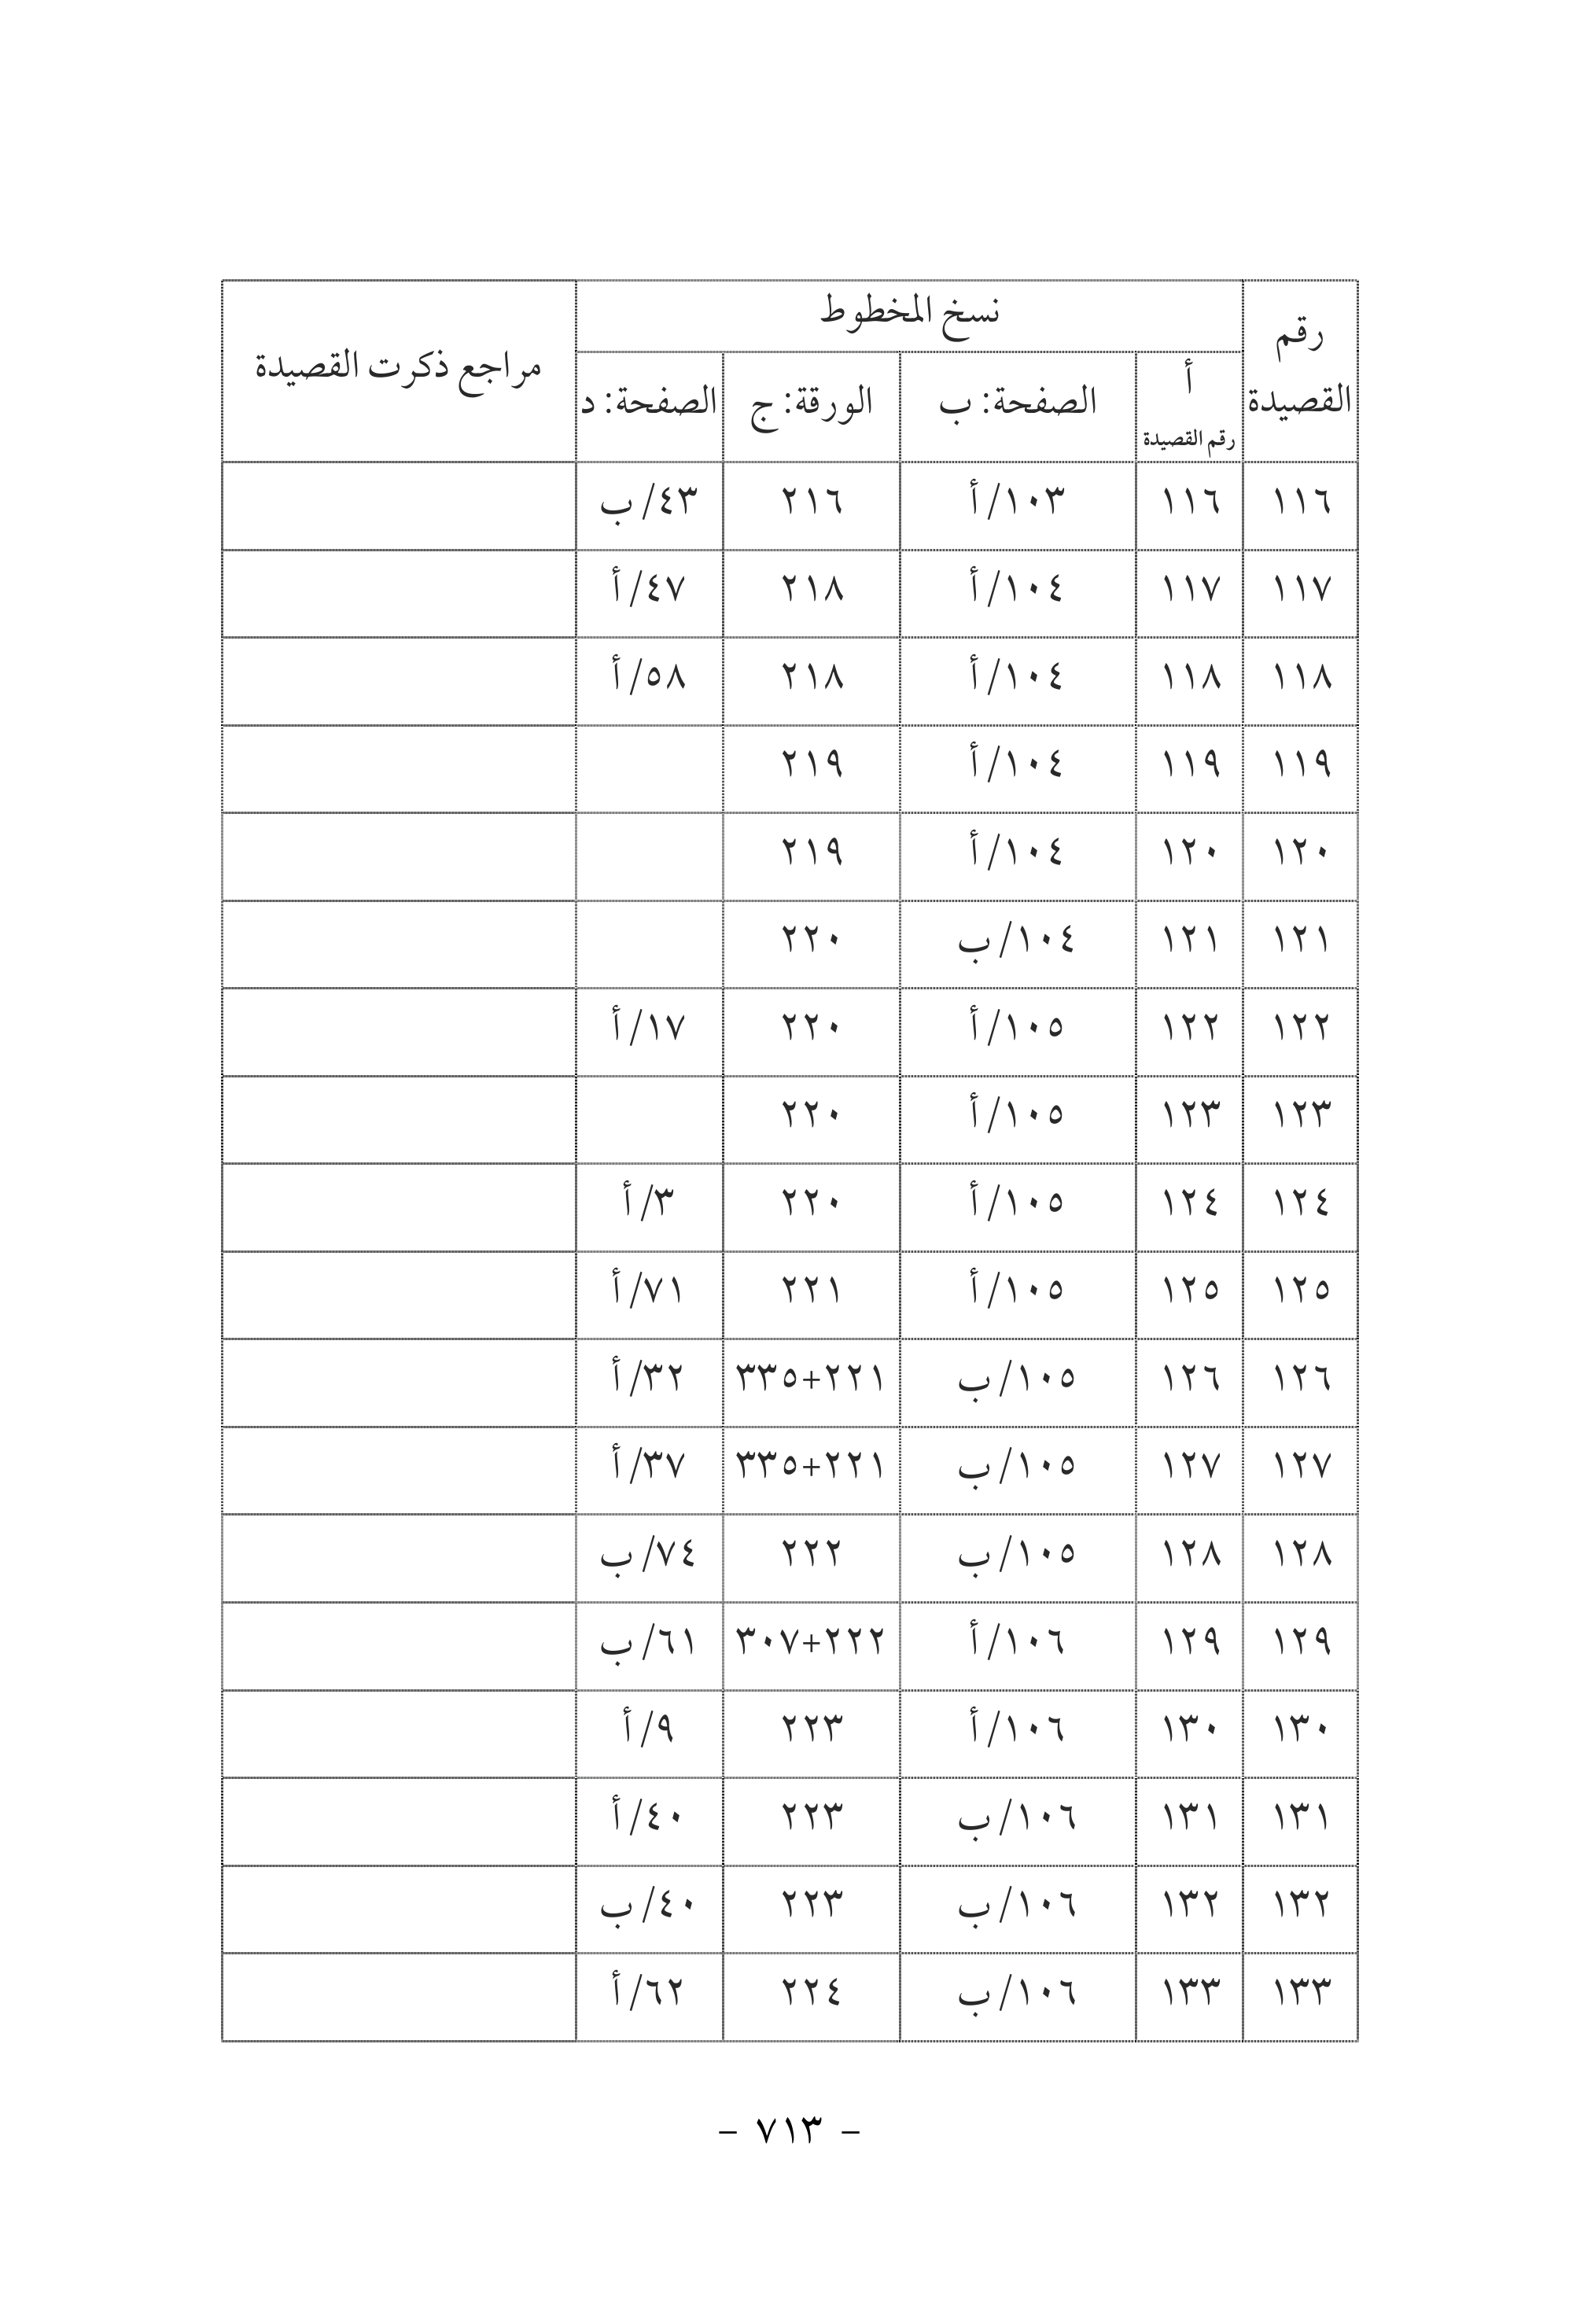 رقم القصيدة نسخ المخطوط مراجع ذكرت القصيدة
أ رقم القصيدة الصفحة: ب الورقة: ج الصفحة: د
١١٦ ١١٦ ١٠٣/أ ٢١٦ ٤٣/ب
١١٧ ١١٧ ١٠٤/أ ٢١٨ ٤٧/أ
١١٨ ١١٨ ١٠٤/أ ٢١٨ ٥٨/أ
١١٩ ١١٩ ١٠٤/أ ٢١٩
١٢٠ ١٢٠ ١٠٤/أ ٢١٩
١٢١ ١٢١ ١٠٤/ب ٢٢٠
١٢٢ ١٢٢ ١٠٥/أ ٢٢٠ ١٧/أ
١٢٣ ١٢٣ ١٠٥/أ ٢٢٠
١٢٤ ١٢٤ ١٠٥/أ ٢٢٠ ٣/أ
١٢٥ ١٢٥ ١٠٥/أ ٢٢١ ٧١/أ
١٢٦ ١٢٦ ١٠٥/ب ٢٢١+٣٣٥ ٣٢/أ
١٢٧ ١٢٧ ١٠٥/ب ٢٢١+٣٣٥ ٣٧/أ
١٢٨ ١٢٨ ١٠٥/ب ٢٢٢ ٧٤/ب
١٢٩ ١٢٩ ١٠٦/أ ٢٢٢+٣٠٧ ٦١/ب
١٣٠ ١٣٠ ١٠٦/أ ٢٢٣ ٩/أ
١٣١ ١٣١ ١٠٦/ب ٢٢٣ ٤٠/أ
١٣٢ ١٣٢ ١٠٦/ب ٢٢٣ ٤٠/ب
١٣٣ ١٣٣ ١٠٦/ب ٢٢٤ ٦٢/أ
- ٧١٣ -